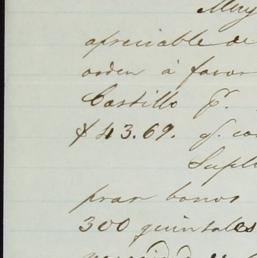 Muy
apreciable de
orden á favor
Castillo pr.
$43.69. q. co
Supli
prar bonos
300 quintales